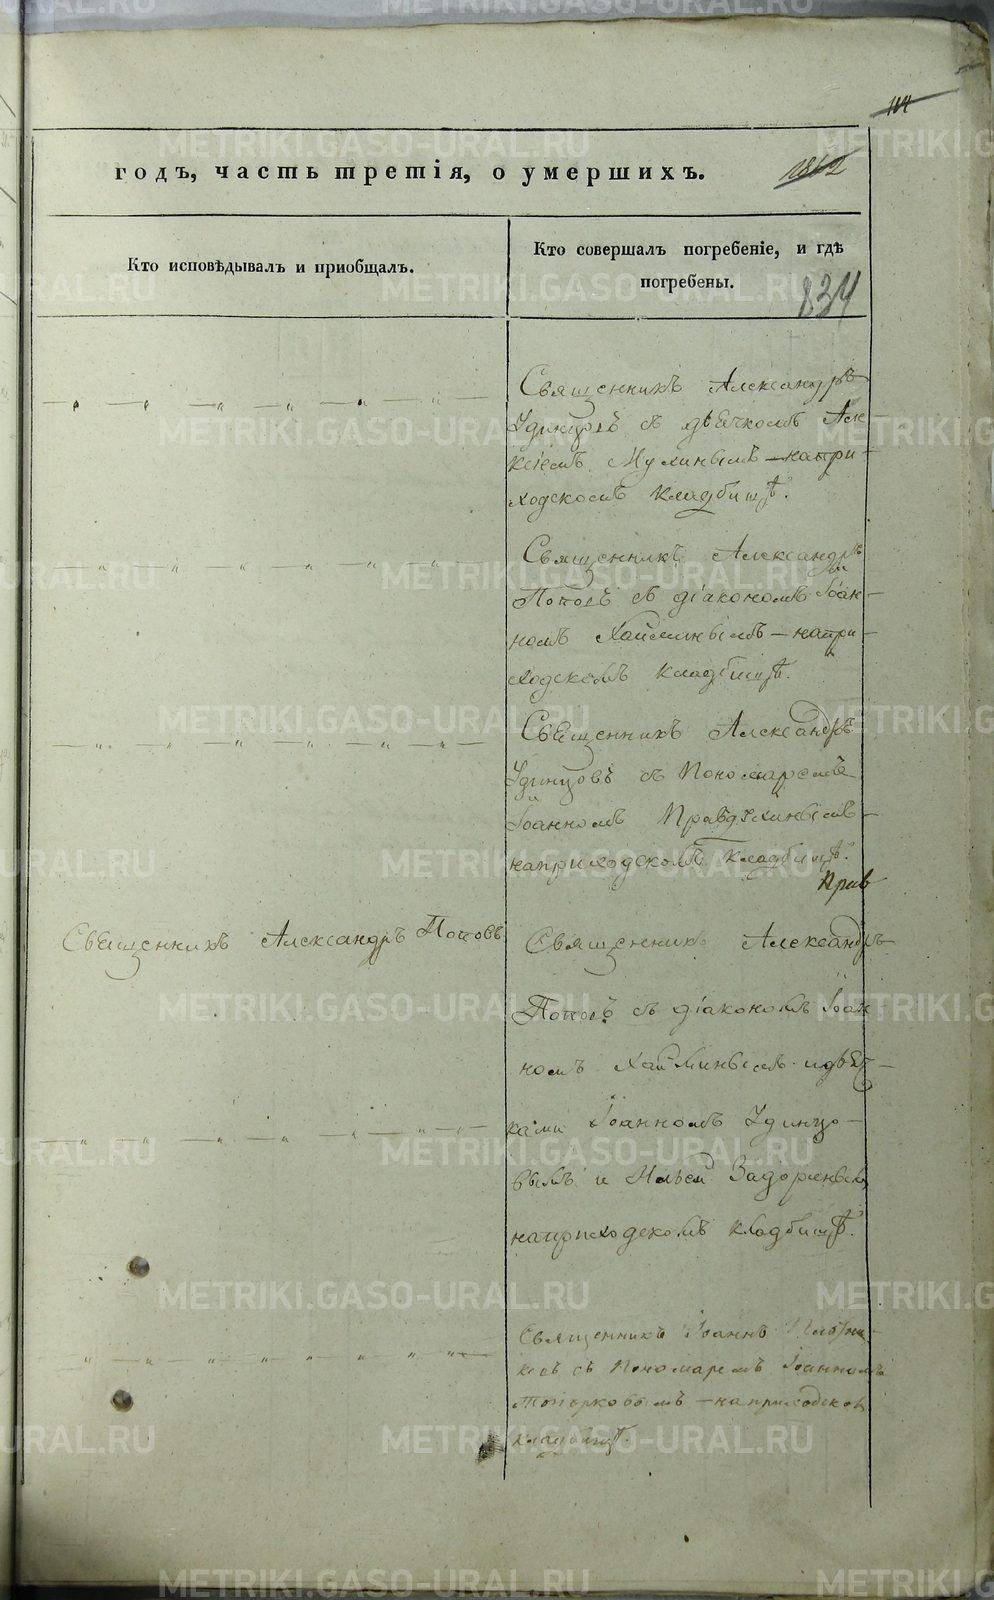 METRIKI.GASO-URAL.RU
114
годъ, часть третія, о умершихъ.
1862
Кто исповѣдывалъ и приобщалъ.
Кто совершалъ погребеніе, и гдѣ
погребены.
834
Священникъ Александръ
Удинцовъ съ дьячкомъ Але
ксіемъ — на при-
ходскомъ кладбищѣ.
Священникъ Александръ
Поповъ съ діакономъ Іоан-
номъ Хайминымъ — на при-
ходскомъ кладбищѣ.
Священникъ Александръ
Удинцовъ съ Пономаремъ
Іоанномъ Правдухинымъ —
на приходскомъ кладбищѣ.
Прав
Священникъ Александръ Поповъ
Священникъ Александръ
Поповъ съ діакономъ Іоан
номъ Хайминымъ и дьяч-
ками Іоанномъ Удинцо-
вымъ и Ильей Задоринымъ
на приходскомъ кладбищѣ.
Священникъ Іоаннъ
съ Пономаремъ Іоанномъ
Топорковымъ — на приходском
кладбищѣ.